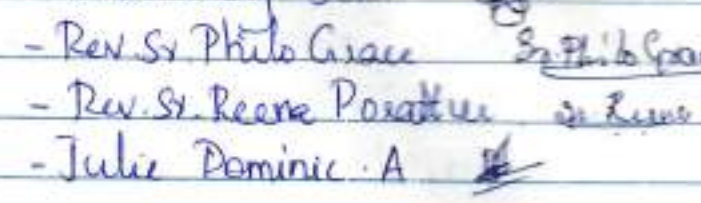 - Rev. Sr. Philo Grace Sr. Philo Grac
- Rev. Sr. Reena Porattur Sr. Reena
- Julie Dominic. A